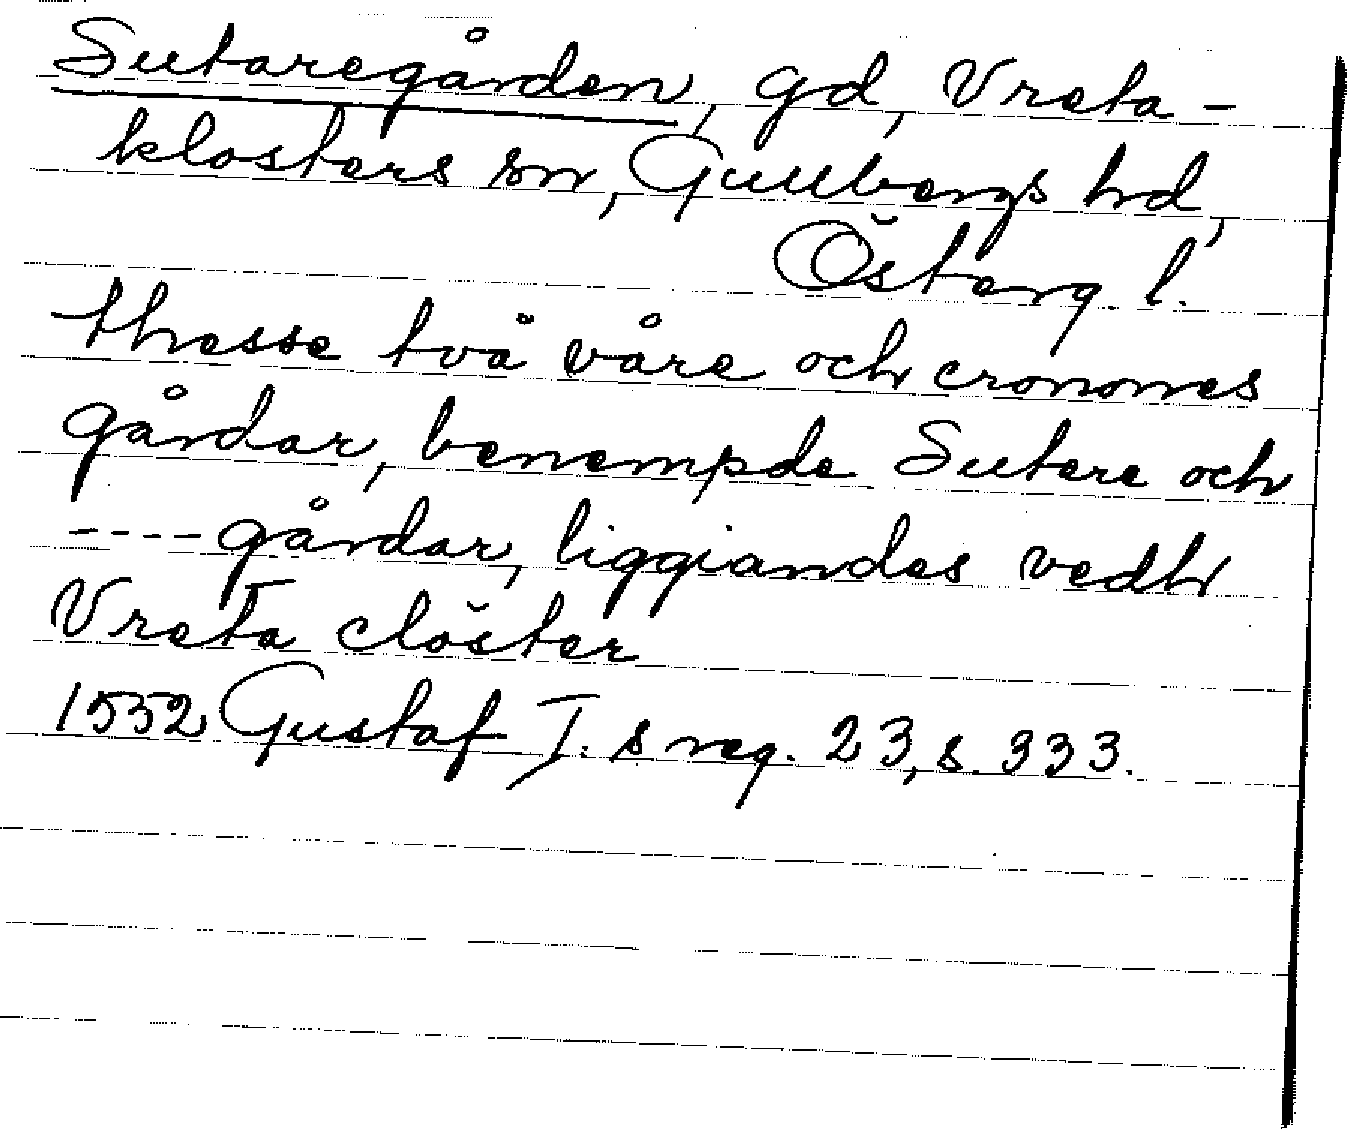 Sutaregården, gd, Vreta-
klosters sn, Gullbergs hd,
Österg. l.
thesse två våre och cronones
gårdar, benempde Sutere och
----gårdar, liggiandes vedh
Vreta clöster
1552 Gustaf I.s reg. 23, s. 333.